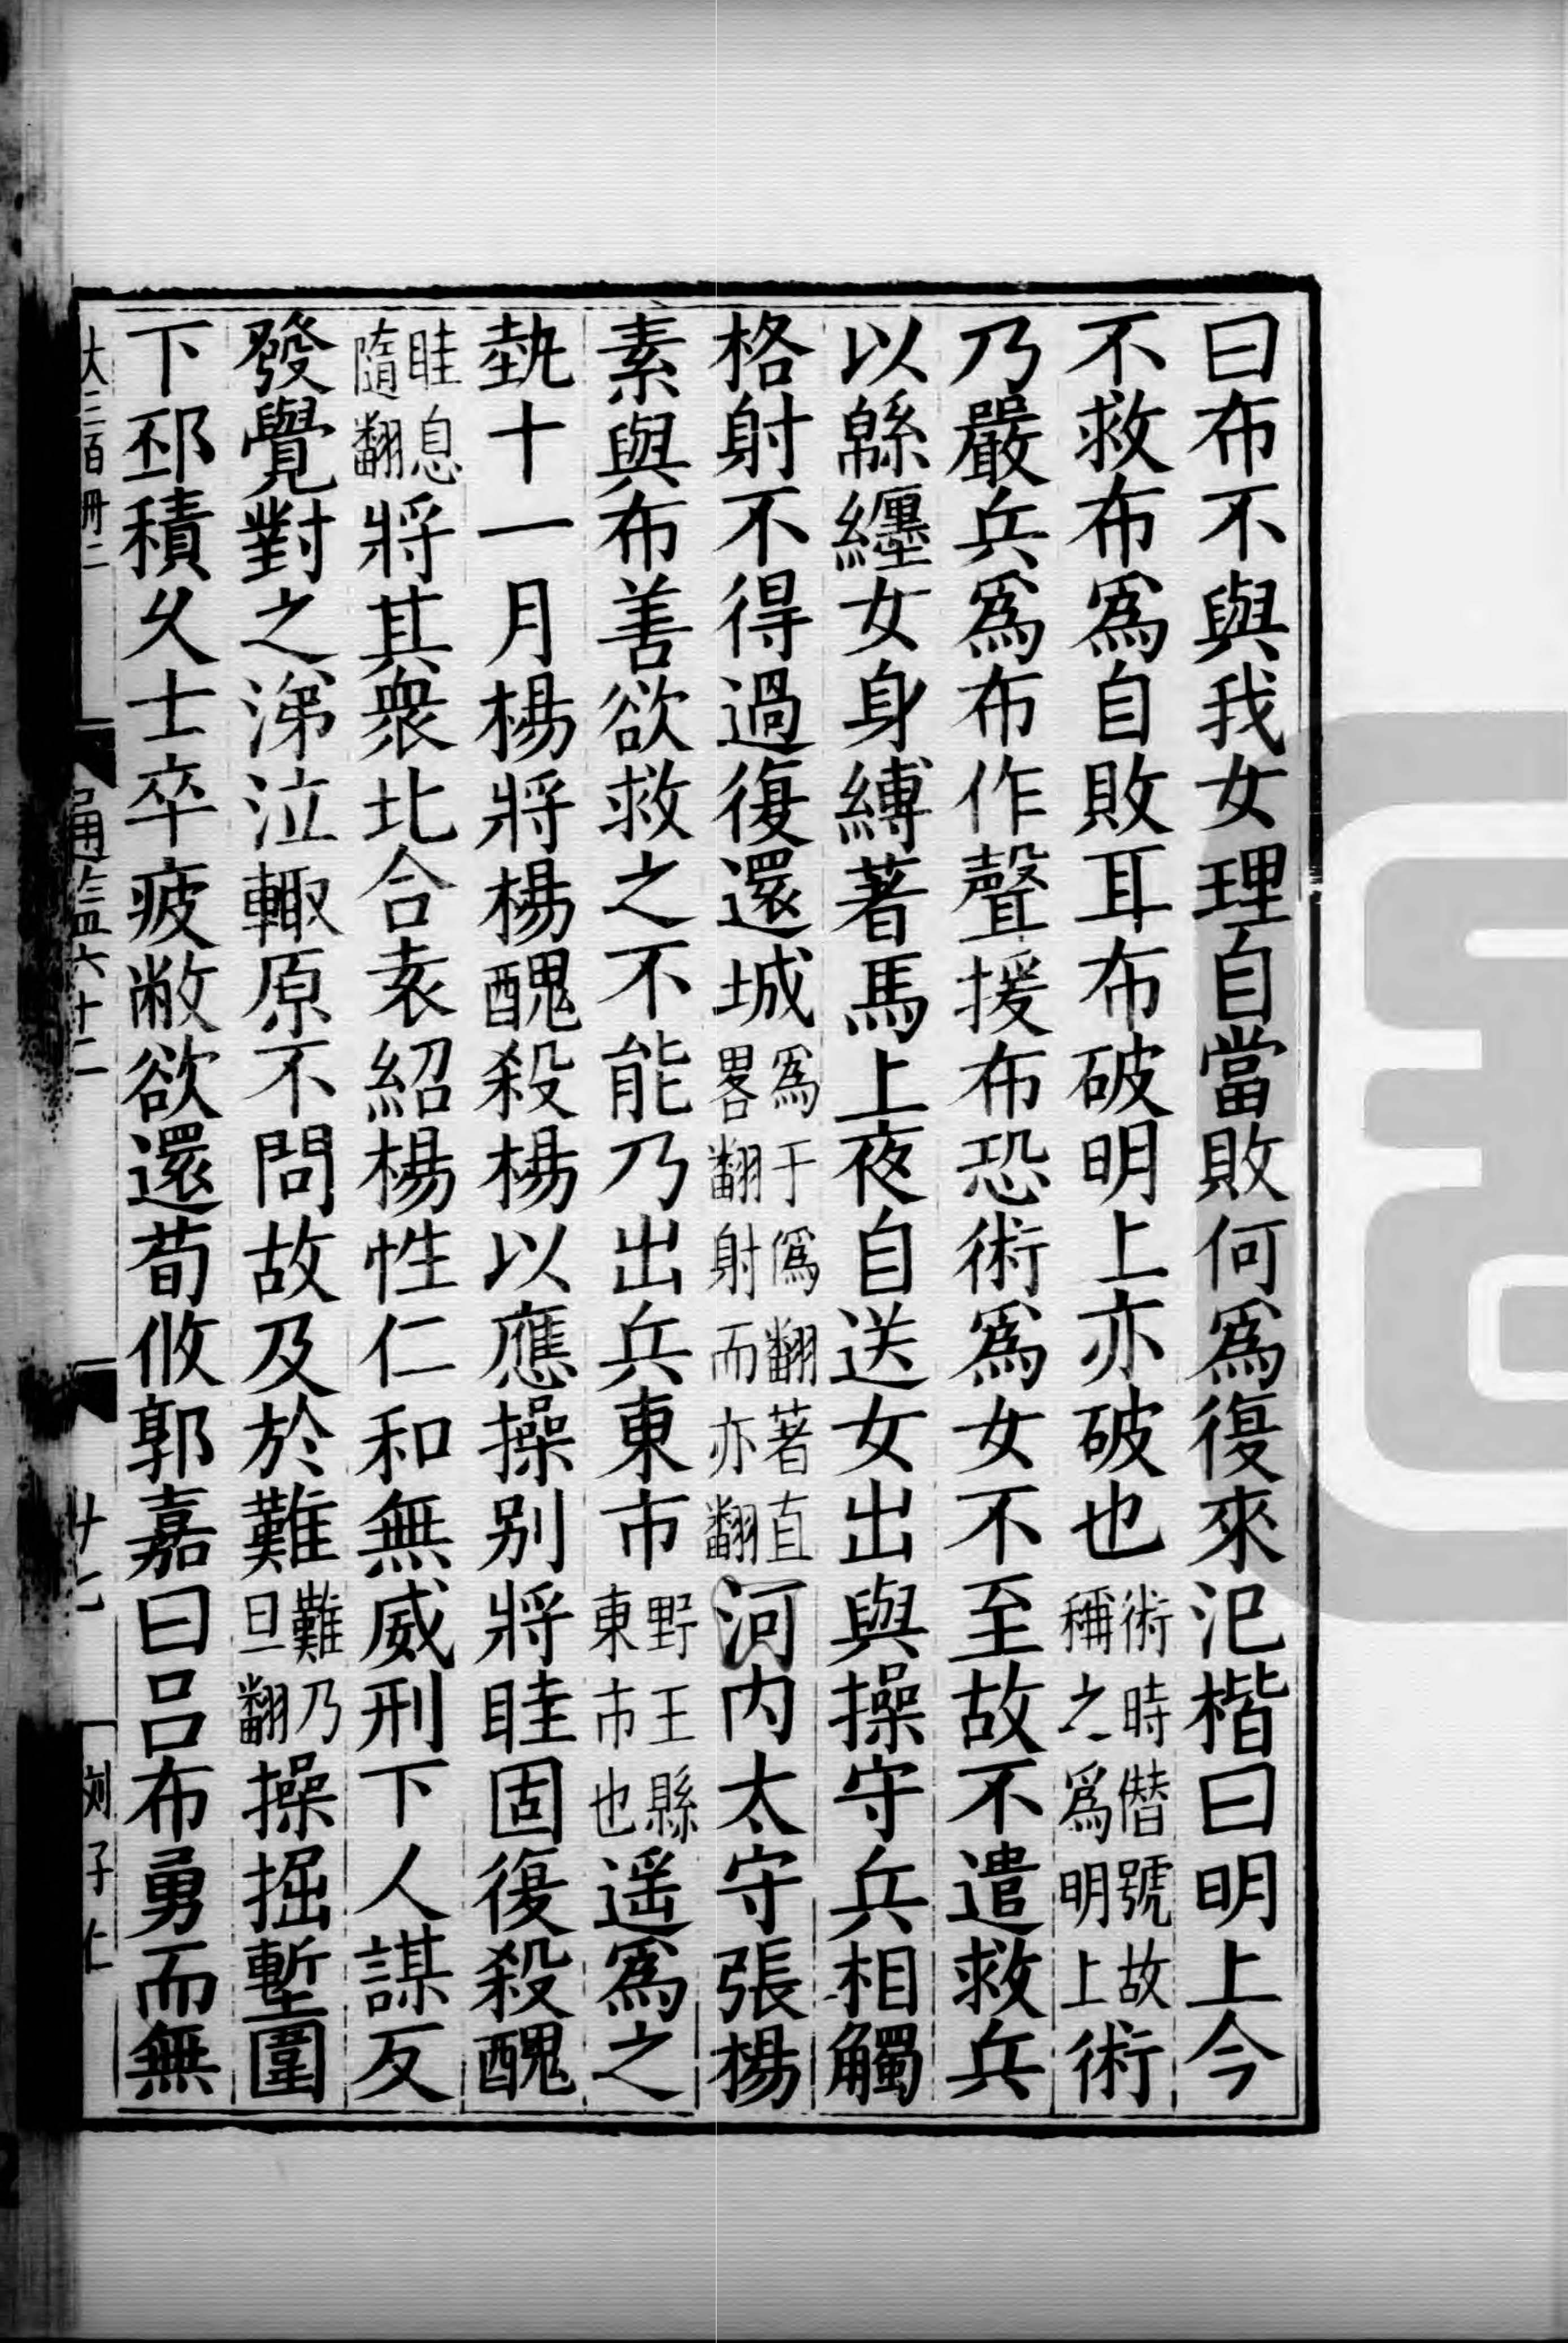 曰布不與我女理自當敗何爲復來汜楷曰明上今
不救布爲自敗耳布破明上亦破也術時僭號故稱之爲明上術
乃嚴兵爲布作聲援布恐術爲女不至故不遣救兵
以緜纏女身縛著馬上夜自送女出與操守兵相觸
格射不得過復還城爲于僞翻著直畧翻射而亦翻河内太守張楊
素與布善欲救之不能乃出兵東市野王縣東市也遥爲之
埶十一月楊將楊醜殺楊以應操别將眭固復殺醜
眭息隨翻將其衆北合袁紹楊性仁和無威刑下人謀反
發覺對之涕泣輙原不問故及於難難乃旦翻操掘塹圍
下邳積久士卒疲敝欲還荀攸郭嘉曰吕布勇而無
大三百卌二
通鑑六十二
廿七
刘子仁